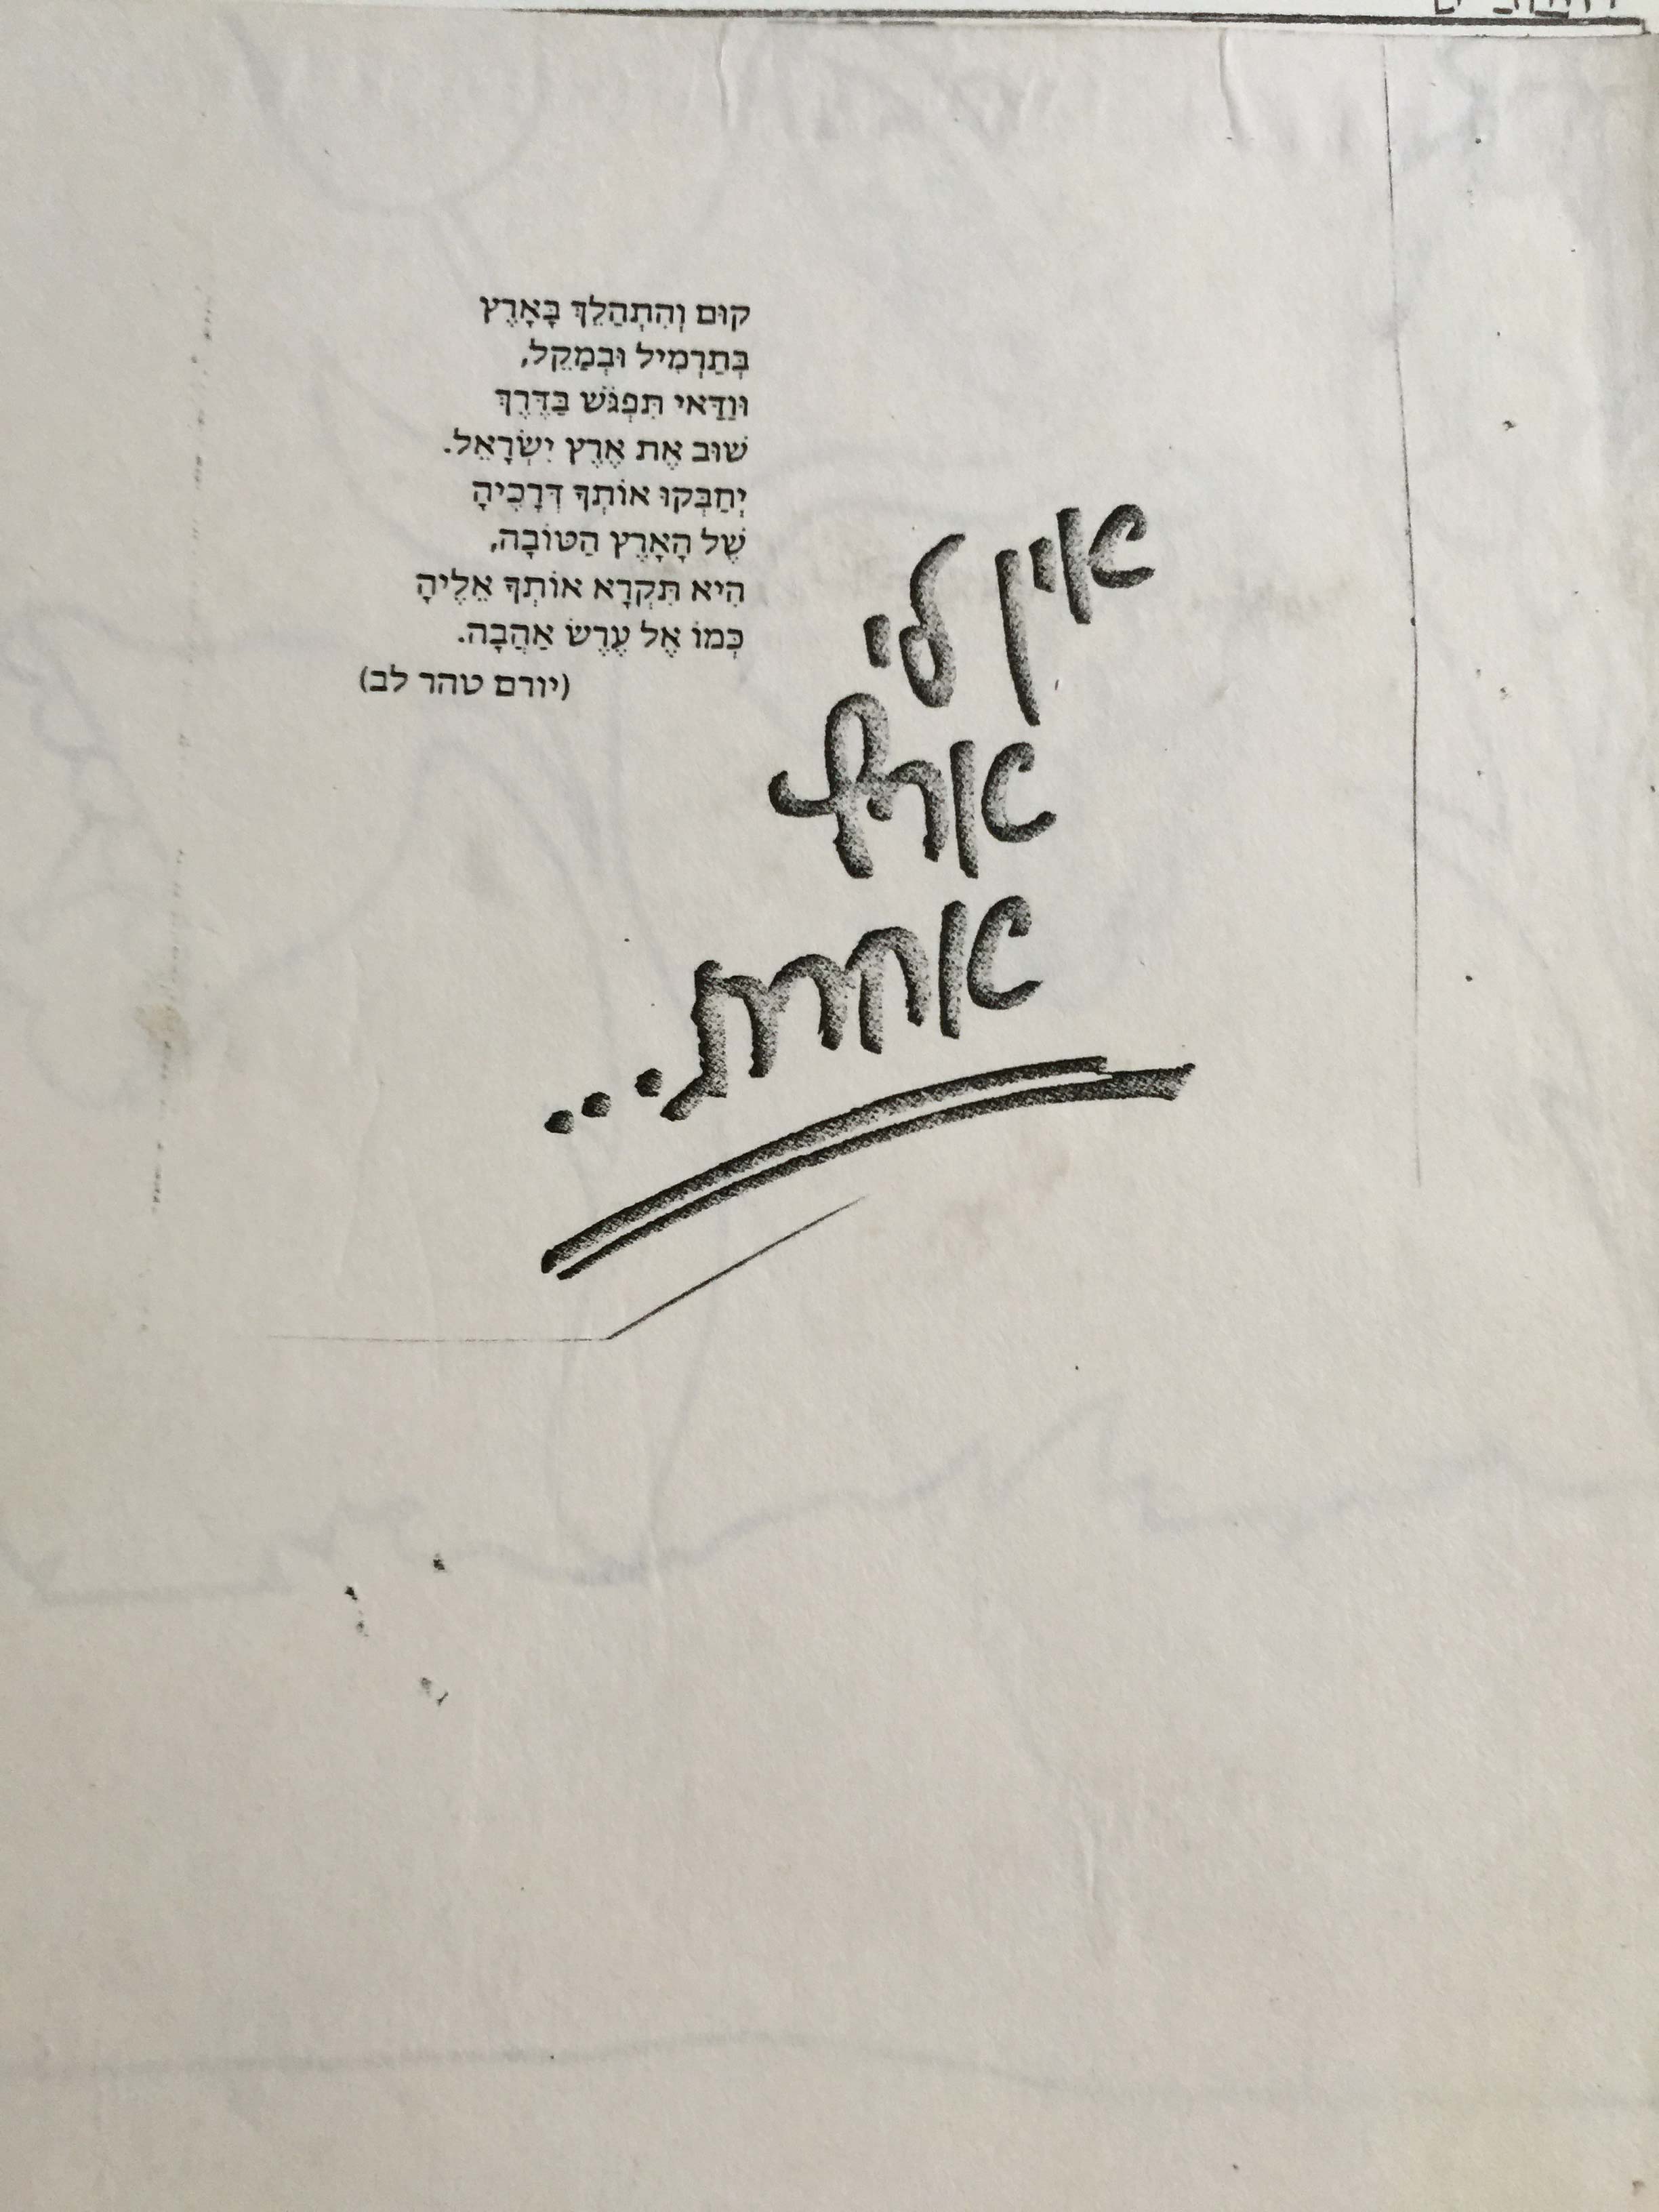 קוּם וְהִתְהַלֵּךְ בָּאָרֶץ
בְּתַרְמִיל וּבְמַקֵּל,
וּוַדַּאי תִּפְגֹּשׁ בַּדֶּרֶךְ
שׁוּב אֶת אֶרֶץ יִשְׂרָאֵל.
יְחַבְּקוּ אוֹתְךָ דְּרָכֶיהָ
שֶׁל הָאָרֶץ הַטּוֹבָה,
הִיא תִּקְרָא אוֹתְךָ אֵלֶיהָ
כְּמוֹ אֶל עֶרֶשׂ אַהֲבָה.
(יורם טהר לב)
אין לי
ארץ
אחרת...